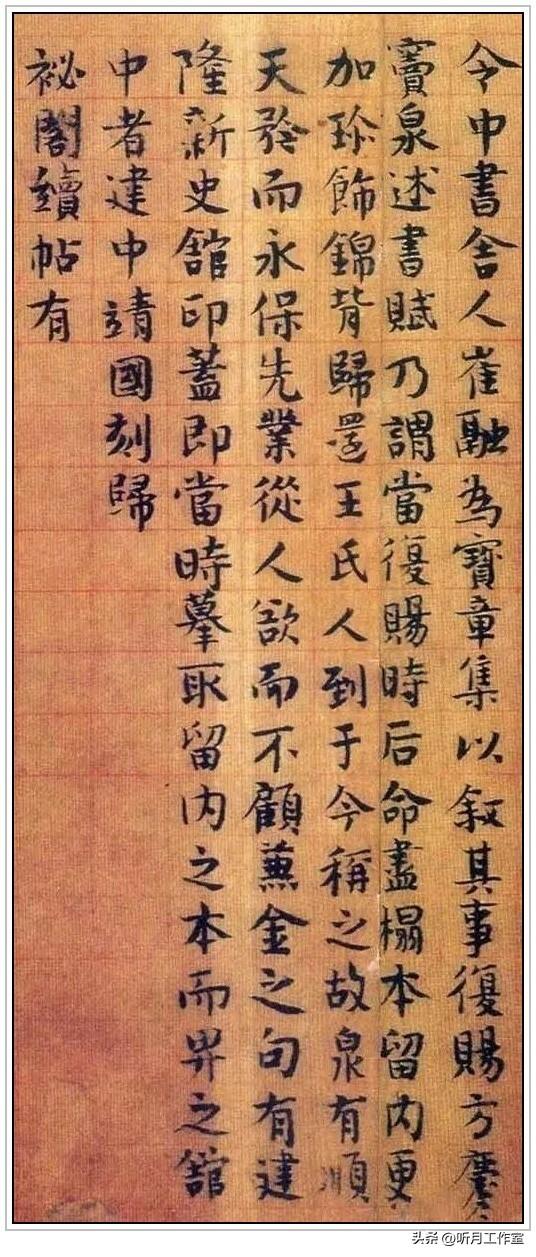 令中書舍人崔融為寶章集以叙其事復賜方慶
竇泉述書賦乃謂當復賜時后命盡榻本留内更
加珎飾錦背歸還王氏人到于今稱之故泉有順
天矜而永保先業從人欲而不顧蒹金之句有建
隆新史舘印蓋即當時摹取留内之本而畀之舘
中者建中靖國刻歸
祕閣續帖有
头条 @听月工作室